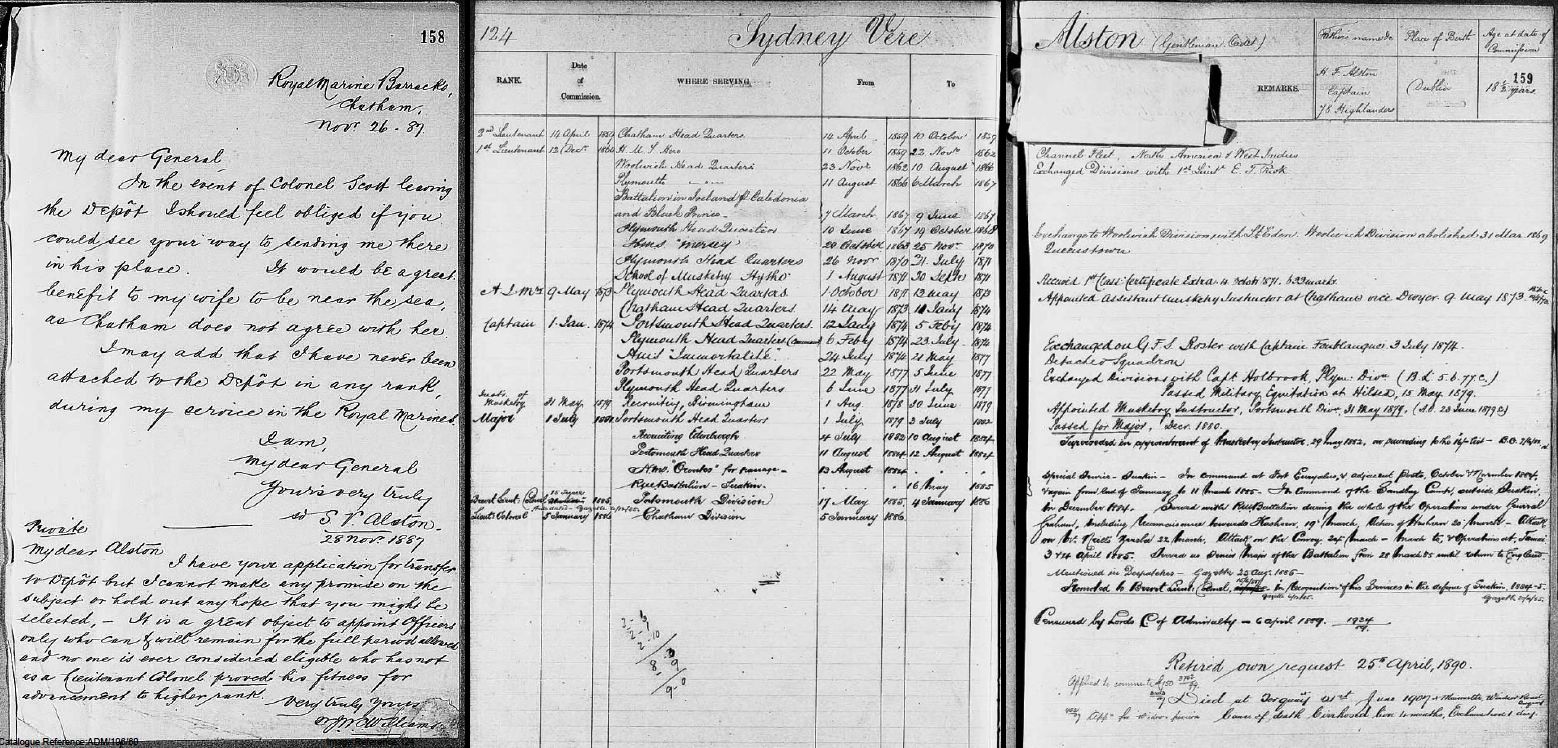 158
Royal Marine Barracks,
Chatham,
Novr 26 - 87
My dear General,
In the event of Colonel Scott leaving
the Depôt I should feel obliged if you
could see your way to sending me there
in his place. It would be a great
benefit to my wife to be near the sea,
as Chatham does not agree with her.
I may add that I have never been
attached to the Depôt in any rank,
during my service in the Royal Marines.
I am,
My dear General
Yours very truly
S. V. Alston.
28 Novr 1887
Private
My dear Alston
I have your application for transfer
to Depôt but I cannot make any promise on the
subject or hold out any hope that you might be
selected, - It is a great object to appoint Officers
only who can & will remain for the full period allowed
and no one is ever considered eligible who has not
as a Lieutenant Colonel proved his fitness for
advancement to higher rank.
Very truly yours
Catalogue Reference:ADM/196/60
124 Sydney Vere
RANK. Date of Commission. WHERE SERVING. From To
2nd Lieutenant 14 April 1859 Chatham Head Quarters 14 April 1859 10 October 1859
1st Lieutenant 11 October 1859 22 Novr 1862
Woolwich Head Quarters 23 Novr 1862 10 August 1866
Plymouth 11 August 1866 6 March 1867
Battalion in Ireland
7 March 1867 9 June 1867
Plymouth Head Quarters 10 June 1867 19 October
"Mersey" 20 October 25 Nov. 1870
Plymouth Head Quarters 26 Nov 1870 31 July 1871
School of Musketry Hythe 1 August 1871 30 Septr 1871
9 May 1873 Plymouth Head Quarters 1 October 1871 13 May 1873
Chatham Head Quarters 14 May 1873 11 Jany 1874
Captain 1 Jan. 1874 Portsmouth Head Quarters. 12 Jany 1874 5 Feby 1874
Plymouth Head Quarters 6 Feby 1874 23 July 1874
"Immortalité" 24 July 1874 21 May 1877
Portsmouth Head Quarters 22 May 1877 5 June 1877
Plymouth Head Quarters 6 June 1877 31 July
Instr. of Musketry 31 May, 1879 Recruiting, Birmingham 1 Aug 1878 30 June 1879
Major 1 July Portsmouth Head Quarters 1 July, 1879 3 July 1882
Recruiting Edinburgh 4 July 1882 10 August 1884
Portsmouth Head Quarters 11 August 1884 12 August 1884
"Orontes" for passage 13 August 1884
Battalion - Suakin. 16 May 1885
1885 Portsmouth Division 17 May 1885 4 January 1886
Lieut. Colonel 5 January 1886 Chatham Division 5 January 1886
Alston (Gentleman Cadet)
Father's name &c Place of Birth Age at date of Commission
REMARKS.
H. F. Alston
Captain
78 Highlanders
Dublin
159
18 years
Channel Fleet, North America & West Indies
Exchanged Divisions with 1st Lieut. E. T. Pusk
Exchange to Woolwich Division with Woolwich Division abolished 31 Mar 1869
Queenstown
Received 1st Class Certificate Extra 4 Octobr 1871. 533 marks
Appointed Assistant Musketry Instructor at Chatham vice Dwyer 9 May 1873.
Exchanged on G.F.S. Roster with Captain Fonblanque 3 July 1874.
Detached Squadron
Exchanged Divisions with Capt Holbrook, Plym: Divn
Passed Military Equitation at Hilsea, 15 May 1879.
Appointed Musketry Instructor, Portsmouth Divn 31 May 1879.
Passed for Major, Decr. 1880.
Superseded in appointment of Musketry Instructor, 29 May 1882, on proceeding to the
Special Service - Suakin - In command at Fort Euryalus, & adjacent posts, October & November 1884,
& again from end of January to 11 March 1885. In command of the
in December 1884. Served with Battalion during the whole of the Operations under General
Graham, including Reconnaissance towards Hasheen, 19th March, Action of Hasheen 20 March - Attack
22 March, Attack on the Convoy 24th March - March to, & Operations at, Tamai
3 & 4 April 1885. Served as Senior Major of the Battalion from 28 March 85 until return to England
Mentioned in Despatches - Gazette 25 Aug. 1885 -
Promoted to Brevet Lieut: Colonel, in recognition of his Services in the defence of Suakin, 1884-5.
Censured by Lords C of Admiralty - 6 April 1889.
Retired own request 25th April, 1890.
Died at Torquay 21st June 1907
Cause of death